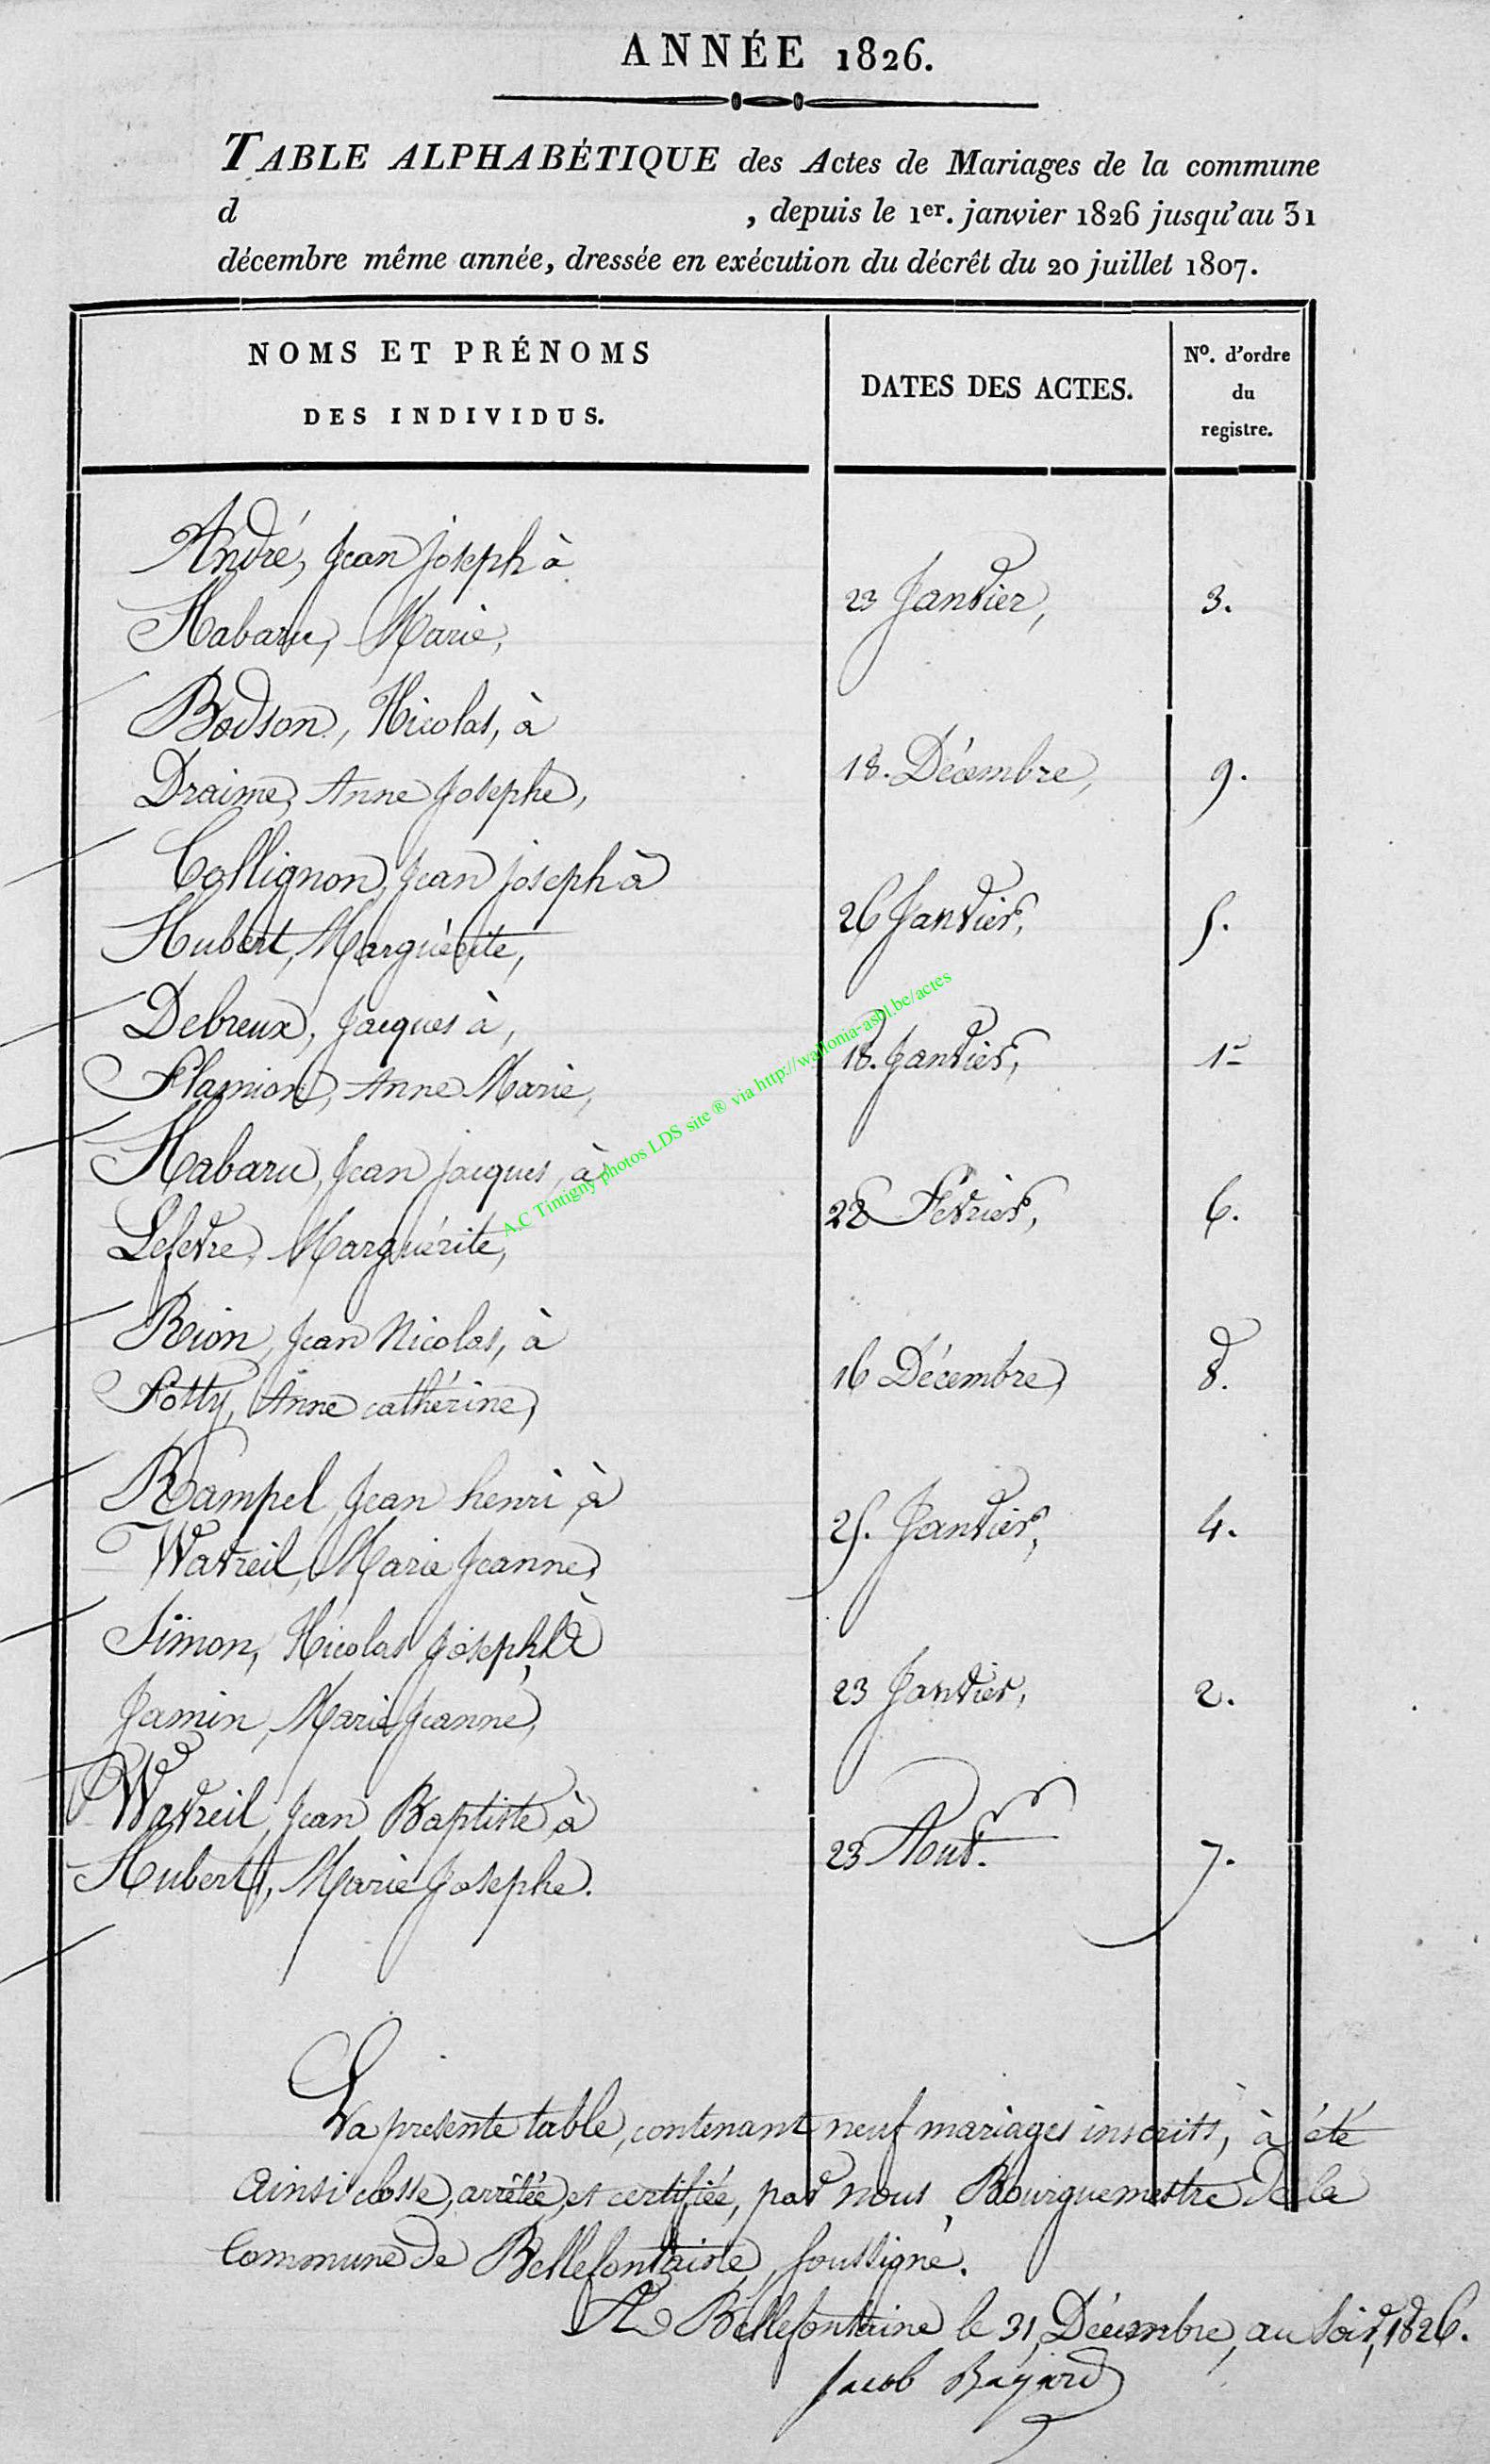 ANNÉE 1826.
TABLE ALPHABÉTIQUE des Actes de Mariages de la commune
d , depuis le 1er. janvier 1826 jusqu'au 31
décembre même année, dressée en exécution du décrêt du 20 juillet 1807.
NOMS ET PRÉNOMS
DES INDIVIDUS.
DATES DES ACTES.
No. d'ordre
du
registre.
André, Jean joseph à
Habaru, Marie,
23 Janvier,
3.
Bodson, Nicolas, à
Draime, Anne Josephe,
18. Décembre,
9.
Collignon, Jean joseph à
Hubert, Marguérite,
26 Janvier,
5.
Debreux, Jacques à,
Flamion, Anne Marie,
18. Janvier,
1-
Habaru, Jean jacques, à
Lefevre, Marguérite,
28 Fevrier,
6.
Rion, Jean Nicolas, à
Fotty, Anne cathérine,
16 Décembre,
8.
Rampel, Jean henri à
Wavreil, Marie Jeanne,
25. Janvier,
4.
Simon, Nicolas Joseph, à
Jamin, Marie Jeanne,
23 Janvier,
2.
Wavreil, Jean Baptiste à
Hubert, Marie Josephe.
23 Aout.
7.
La presente table, contenant neuf mariages inscrits, à été
ainsi closse, arrêtée, et certifiée, par nous, Bourguemestre de la
Commune de Bellefontaine, soussigné.
A Bellefontaine le 31, Décembre, au soir, 1826.
Jacob Bayard
A.C Tintigny photos LDS site ® via http://wallonia-asbl.be/actes